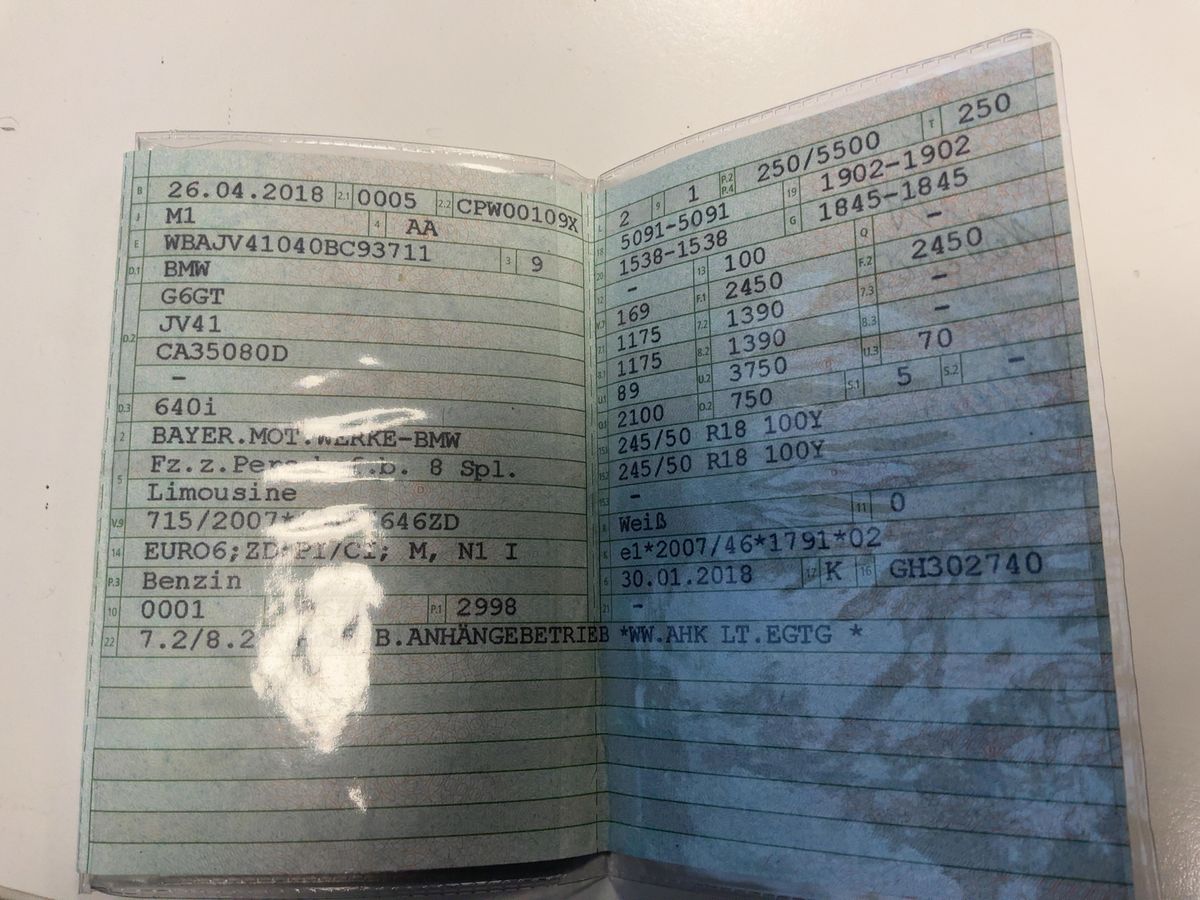 B 26.04.2018 2.1 0005 2.2 CPW00109X
J M1 4 AA
E WBAJV41040BC93711 3 9
D.1 BMW
G6GT
D.2 JV41
CA35080D
–
D.3 640i
2 BAYER.MOT.WERKE-BMW
Fz.z. b. 8 Spl.
5 Limousine
V.9 715/2007* 646ZD
14 EURO6;ZD PI/CI; M, N1 I
P.3 Benzin
10 0001 P.1 2998
22 7.2/8.2 B.ANHÄNGEBETRIEB *WW.AHK LT.EGTG *
L 2 9 1 P.2 P.4 250/5500 T 250
18 5091-5091 19 1902-1902
20 1538-1538 G 1845-1845
12 – 13 100 Q –
V.7 169 F.1 2450 F.2 2450
7.1 1175 7.2 1390 7.3 –
8.1 1175 8.2 1390 8.3 –
U.1 89 U.2 3750 U.3 70
O.1 2100 O.2 750 S.1 5 S.2 –
15.1 245/50 R18 100Y
15.2 245/50 R18 100Y
15.3 –
R Weiß 11 0
K e1*2007/46*1791*02
6 30.01.2018 17 K 16 GH302740
21 –